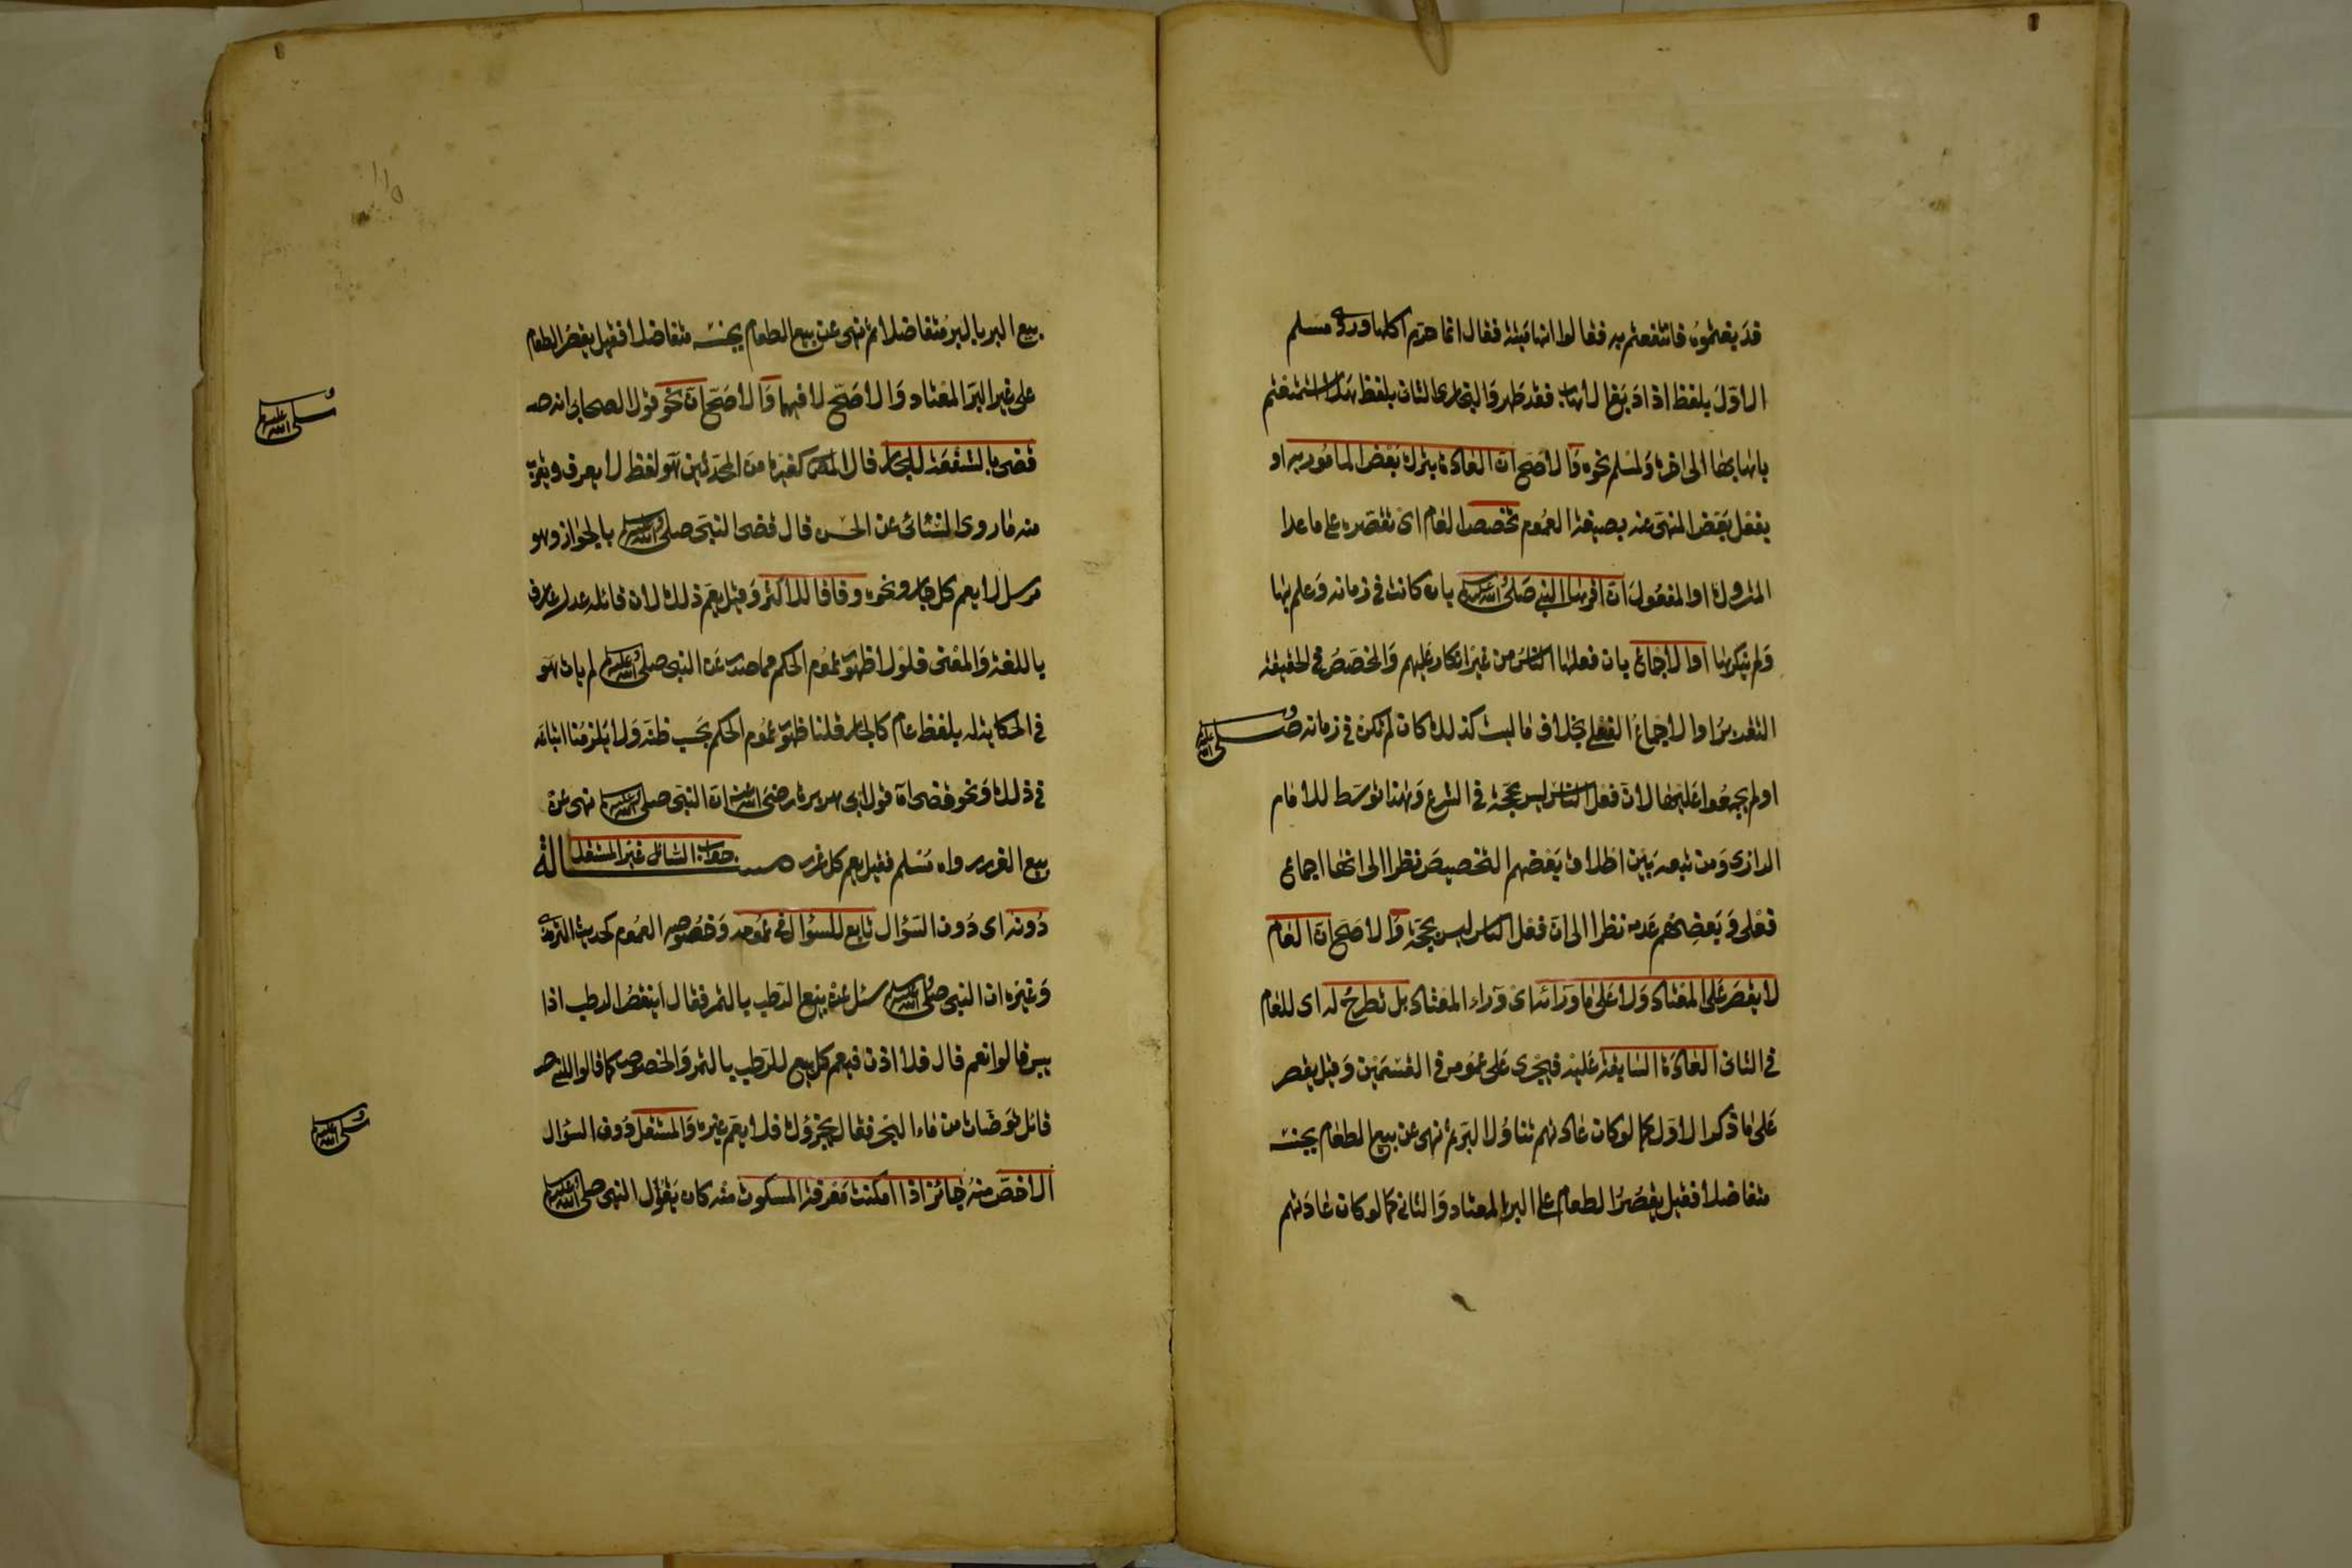 قد بغتموه فانتفعتم به فقالوا انها ميتة فقال انما حرم اكلها وروى مسلم
الاول بلفظ اذا دبغ الاهاب فقد طهر والبخارى الثانى بلفظ هلا استمتعتم
باهابها الى اخره ولمسلم نحوه والاصح ان العادة بترك بعض المامور به او
بفعل بعض المنهى عنه بصيغة العموم تخصص العام اى تقصره على ما عدا
المتروك او المفعول ان اقرها النبى صلى الله عليه وسلم بان كانت فى زمانه وعلم بها
ولم ينكرها او الاجماع بان فعلها الناس من غير انكار عليهم والمخصص فى الحقيقة
التقرير او الاجماع الفعلى بخلاف ما ليست كذلك كان لم تكن فى زمانه صلى الله عليه وسلم
او لم يجمعوا عليها لان فعل الناس ليس بحجة فى الشرع وهذا توسط للامام
الرازى ومن تبعه بين اطلاق بعضهم التخصيص نظرا الى انها اجماع
فعلى وبعضهم عدمه نظرا الى ان فعل الناس ليس بحجة والاصح ان العام
لا يقصر على المعتاد ولا على ما ورائه اى وراء المعتاد بل تطرح له اى للعام
فى الثانى العادة السابقة عليه فيجرى على عمومه فى القسمين وقيل يقصر
على ما ذكر الاول كما لو كان عادتهم تناول البر ثم نهى عن بيع الطعام بجنسه
متفاضلا فقيل يقصر الطعام على البر المعتاد والثانى كما لو كان عادتهم
بيع البر بالبر متفاضلا ثم نهى عن بيع الطعام بجنسه متفاضلا فقيل يقصر الطعام
على غير البر المعتاد والاصح لا فيهما والاصح ان نحو قول الصحابى انه صلى الله عليه وسلم
قضى بالشفعة للجار قال المص كغيره من المحدثين هو لفظ لا يعرف ويقرب
منه ما روى النسائى عن الحسن قال قضى النبى صلى الله عليه وسلم بالجوار وهو
مرسل لا يعم كل جار ونحوه وفاقا للاكثر وقيل يعم ذلك لان قائله عدل عارف
باللغة والمعنى فلولا ظهور عموم الحكم مما صدر عن النبى صلى الله عليه وسلم لم يات هو
فى الحكاية له بلفظ عام كالجار قلنا ظهور عموم الحكم بحسب ظنه ولا يلزمنا اتباعه
فى ذلك ونحو قضى اه قول ابى هريرة رضى الله عنه ان النبى صلى الله عليه وسلم نهى عن
بيع الغرر رواه مسلم فقيل يعم كل غرر مسالة جواب السائل غير المستقل
دونه اى دون السؤال تابع للسؤال فى عمومه وخصوصه العموم كحديث الترمذى
وغيره ان النبى صلى الله عليه وسلم سئل عن بيع الرطب بالتمر فقال اينقص الرطب اذا
يبس قالوا نعم قال فلا اذن فيعم كل بيع للرطب بالتمر والخصوص كما قالوا للنبى صلى الله عليه وسلم
قائل توضات من ماء البحر فقال يجزؤك فلا يعم غيره والمستقل دون السؤال
الاخص منه جائز اذا امكنت معرفة المسكوت منه كان يقول النبى صلى الله عليه وسلم